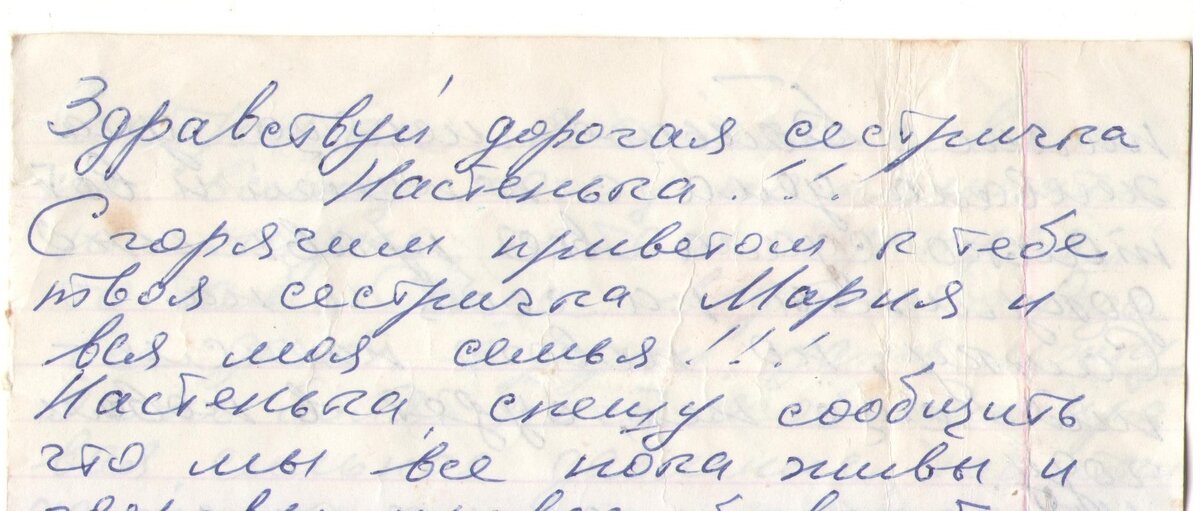 Здравствуй дорогая сестричка
Настенька!!!
С горячим приветом к тебе
твоя сестричка Мария и
вся моя семья!!!
Настенька, спешу сообщить
что мы все пока живы и